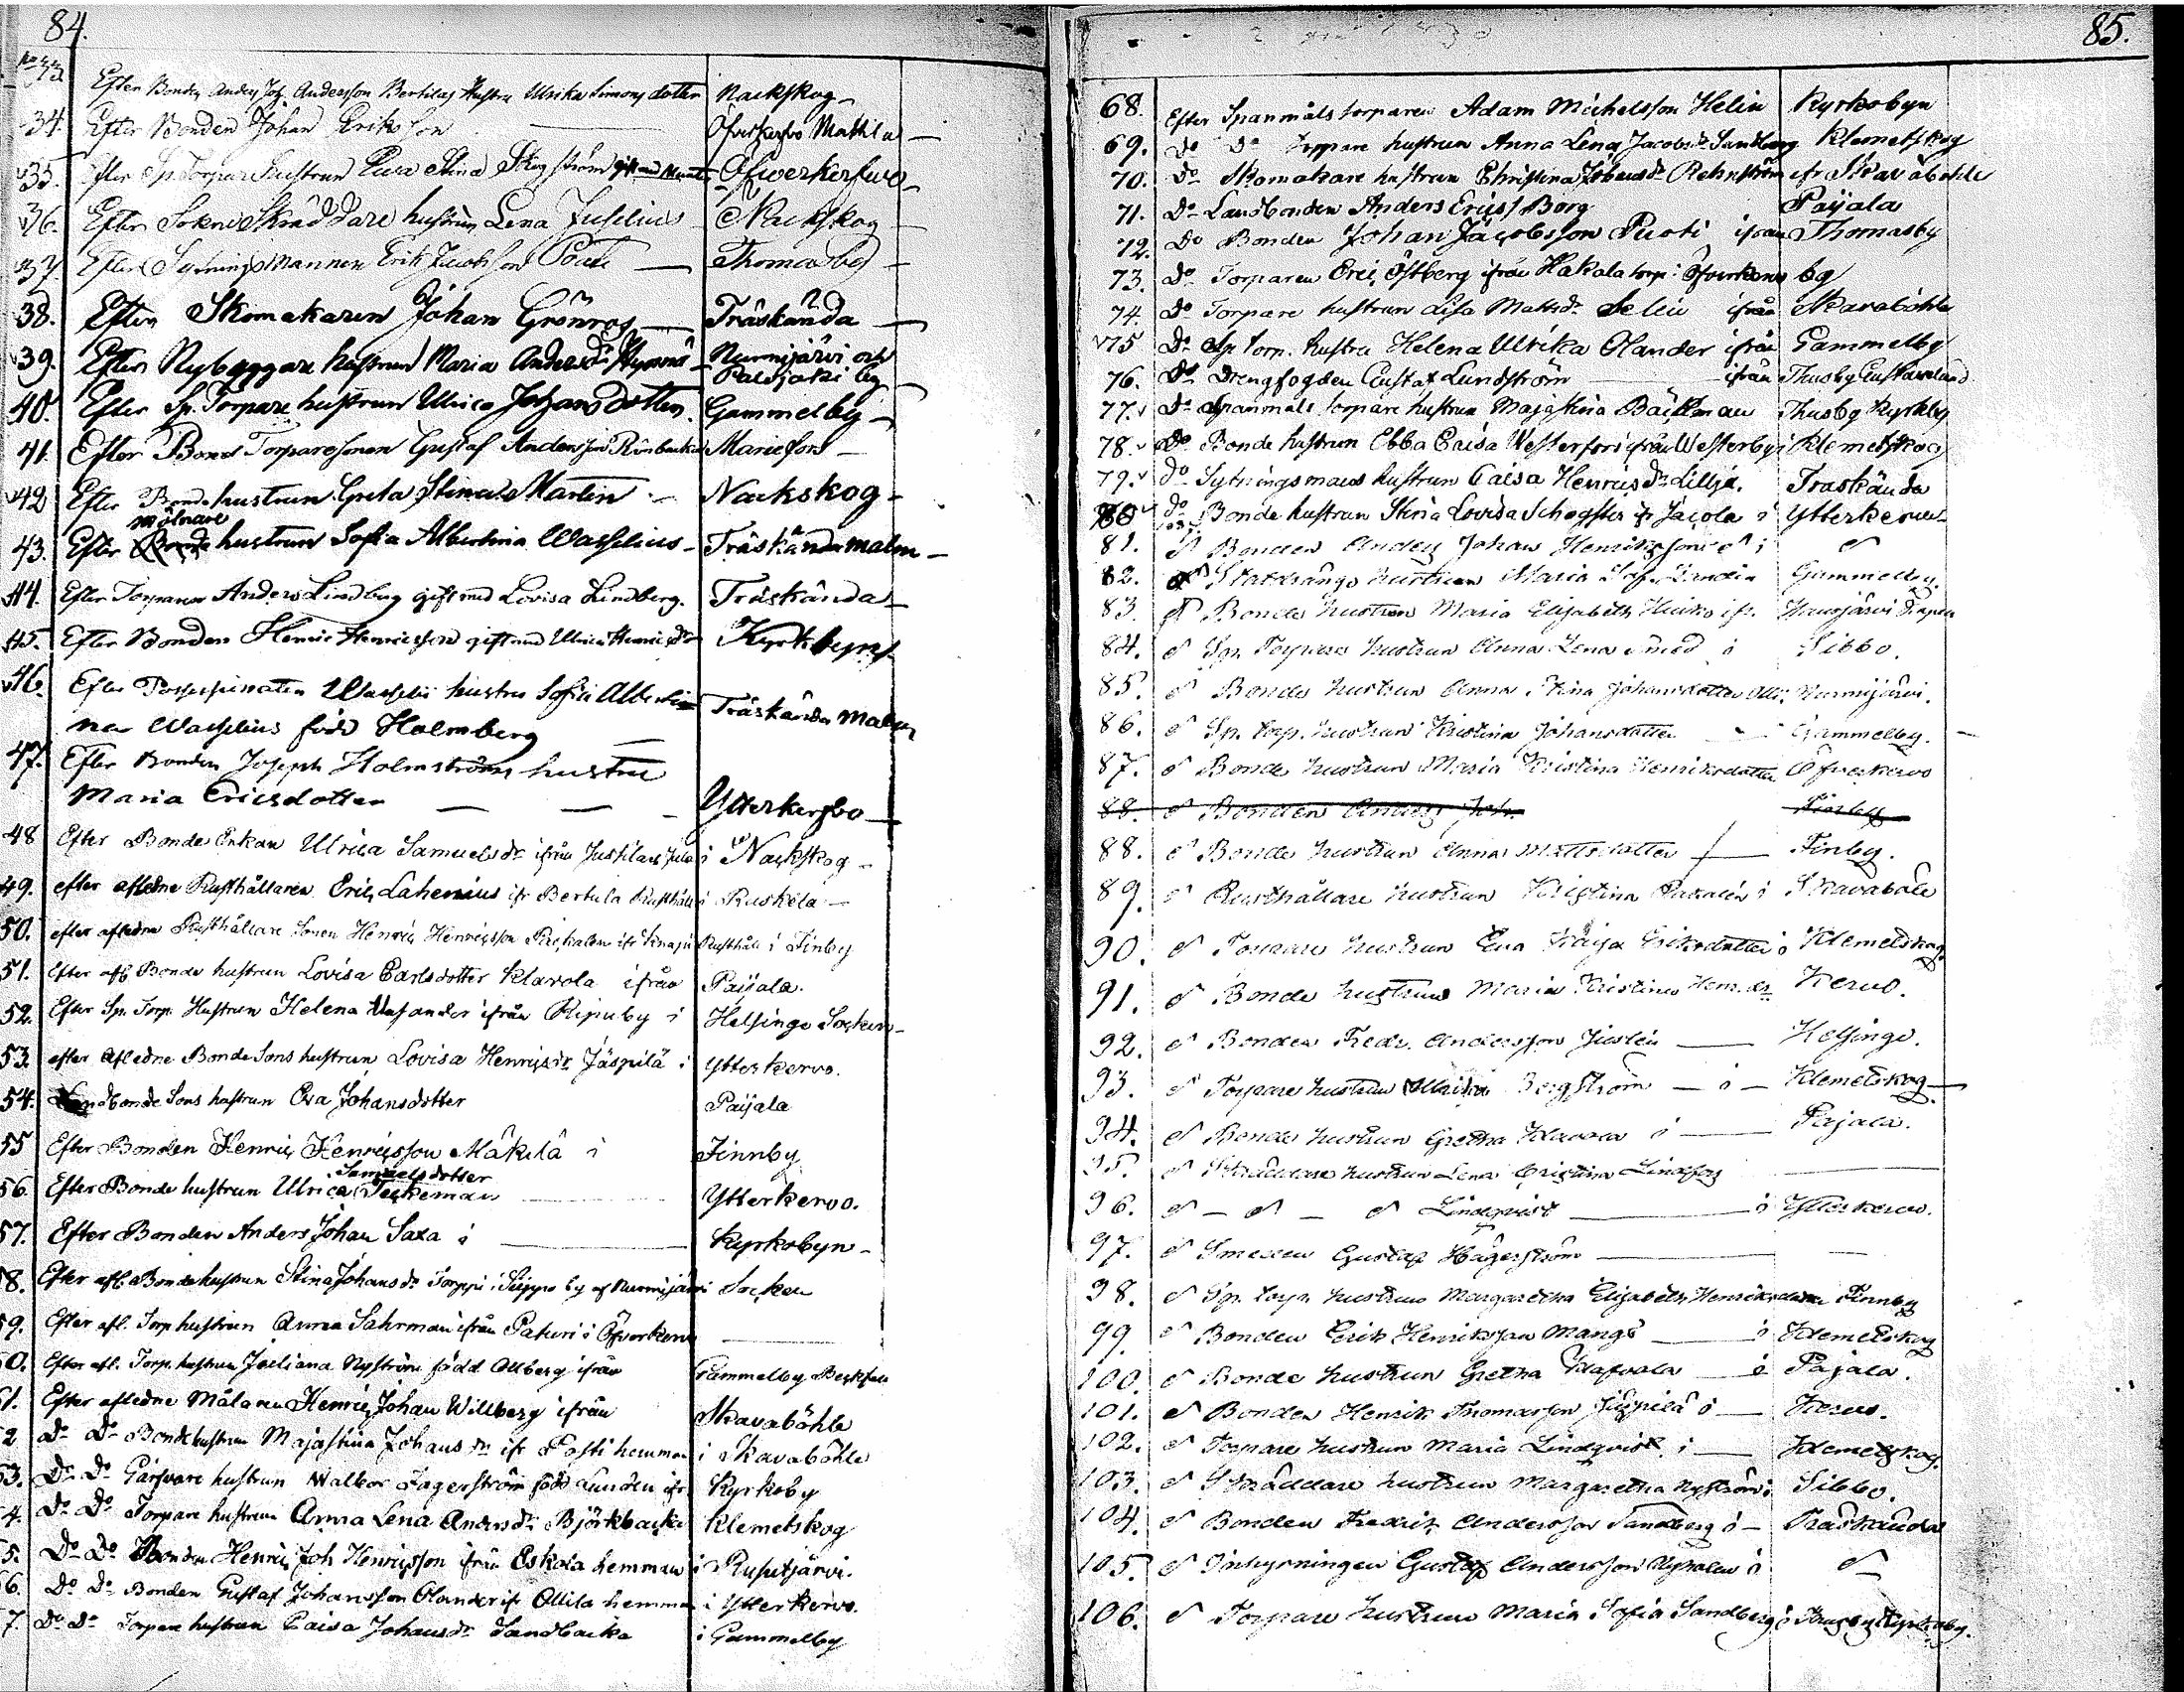 84.
No 33. Efter Bonden Anders Joh. Andersson Bertilas Hustru Ulrika Simons dotter Nackskog
34. Efter Bonden Johan Eriksson Mattila
35. Efter Sp. Torpare hustrun Eva Stina Skogström Ofverkerfvo
36. Efter Sokne Skräddare hustrun Lena Juselius Nackskog
37. Efter Sytningsmannen Erik Jacobsson Thomasby
38. Efter Skomakaren Johan Grönros Träskända
39. Efter Nybyggare hustrun Maria Andersdr Nurmijärvi och
Palojoki by
40. Efter Sp. Torpare hustrun Ulrica Johansdotter Gammelby
41. Efter Bond Torparesonen Gustaf Andersson Mariefors
42 Efter Bonde hustrun Greta Stina Martin Nackskog
Mölnare
43. Efter Bonde hustrun Sofia Albertina Wasselius Träskända malm
44. Efter Torparen Anders Lindberg gift med Lovisa Lindberg. Träskända
45. Efter Bonden Henric Henricsson gift med Ulrica Henricsdr Kyrkbyn
46. Efter Wasselii hustru Sofia Alberti Träskända Malm
na Wasselius född Holmberg
47. Efter Bonden Joseph Holmströms hustru
Maria Ericsdotter Ytterkerfvo
48 Efter Bonde Enkan Ulrica Samuelsdr ifrån i Nackskog
49. efter afledne Rusthållaren Eric Lahenius ifr Bertula Rusthåll i Ruskela
50. efter afledne Rusthållare Sonen Henric Henricsson ifr Knapi Rusthåll i Finby
51. Efter afl Bonde hustrun Lovisa Carlsdotter Klavola ifrån Paijala.
52. Efter Sp. Torp. Hustrun Helena ifrån Ripuby i Helsinge Socken
53. efter afledne Bonde Sons hustrun Lovisa Henricsdr Jäspilä i Ytterkervo.
54. Landbonde Sons hustrun Eva Johansdotter Paijala
55 Efter Bonden Henric Henricsson Mäkilä i Finnby
Samuelsdotter
56. Efter Bonde hustrun Ulrica Teckeman Ytterkervo.
57. Efter Bonden Anders Johan Saxa i Kyrkobyn
58. Efter afl. Bonde hustrun Stina Johansdr Torppi i by af Nurmijärvi Socken
59. Efter afl. Torp hustrun Anna Sahrman ifrån Paturi i Öfverkervo
60. Efter afl. Torp. hustrun Juliana Nyström född Allberg ifrån Gammelby
61. Efter afledne Målaren Henric Johan Willberg ifrån Skavaböhle
62 Do Do Bonde hustrun Majastina Johansdr ifr Pasti hemman i Skavaböhle
63. Do Do Garfvare hustrun Walbor Fagerström född Lunden ifr Kyrkoby
64. Do Do Torpare hustrun Anna Lena Andersdr Björkbacka Klemetskog
65. Do Do Bonden Henric Joh Henricsson ifrån Eskola hemman i Rusutjärvi.
66. Do Do Bonden Gustaf Johansson Olander ifr Ollila hemman i Ytterkervo.
67. Do Do Torpare hustrun Caisa Johansdr Sandbacka i Gammelby
85.
68. Efter Spanmåls torparen Adam Michelsson Helin Kyrkobyn
69. Do Do Torpare hustrun Anna Lena Jacobsdr Sandberg Klemetskog
70. Do Skomakare hustrun Christina Johansdr Rehnström ifr Skavaböhle
71. Do Landbonden Anders Ericss Borg Paijala
72. Do Bonden Johan Jacobsson Puoti ifrån Thomasby
73. Do Torparen Eric Östberg ifrån Hakala torp i Öfverkervo by
74 Do Torpare hustrun Lisa Mattsdr Selin ifrån Skavaböhle
75 Do Sp torp. hustru Helena Ulrika Olander ifrån Gammelby
76. Do Drengfogden Gustaf Lundström ifrån Thusby Gustavelund
77. Do Spanmåls torpare hustrun Majastina Bäckman Thusby Kyrkby
78. Do Bonde hustrun Ebba Caisa Westerfors ifrån Westerby i Klemetskog
79. Do Sytningsmans hustrun Caisa Henricsdr Lillja. Träskända
80 Do Bonde hustrun Stina Lovisa Schogster fr Jacola i Ytterkervo
81. d Bonden Anders Johan Henriksson d i d
82. d Statdrängs hustrun Maria Sof. Landin Gammelby.
83. d Bonde hustrun Maria Elisabeth ifr. Hausjärvi
84. d Sp. Torpare hustrun Anna Lena Smed i Sibbo.
85. d Bonde hustrun Anna Stina Johansdotter Nurmijärvi.
86. d Sp. torp. hustrun Kristina Johansdotter Gammelby.
87. d Bonde hustrun Maria Kristina Henriksdotter Öfverkervo
88. d Bonden Anders Joh. Finby
88. d Bonde hustrun Anna Mattsdotter Finby.
89. d Rusthållare hustrun Kristina i Skavaböle
90. d Torpare hustrun Eva Kaija Eriksdotter i Klemetskog
91. d Bonde hustrun Maria Kristina Henr. dr Kervo.
92. d Bonden Fredr. Andersson Helsinge.
93. d Torpare hustrun Ulrika Bergström i Klemetskog
94. d Bonde hustrun Gretha Klavola i Pajala.
95. d Skräddare hustrun Lena Cristina Lindfors
96. d d d Lindqvist i Ytterkervo.
97. d Smeden Gustaf Hägerström
98. d Sp. torp. hustrun Margaretha Elisabeth Henriksdotter Finnby
99 d Bonden Erik Henriksson Mangs i Klemetskog
100. d Bonde hustrun Gretha Klafvola i Pajala.
101. d Bonden Henrik Thomasson Jäspilä i Kervo.
102. d Torpare hustrun Maria Lindqvist i Klemetskog.
103. d Skräddare hustrun Margaretha Nyström i Sibbo.
104. d Bonden Fredrik Andersson Sandberg i Träskända
105. d Inhysningen Gustaf Andersson i d
106. d Torpare hustrun Maria Sofia Sandberg i Thusby Kyrkoby.